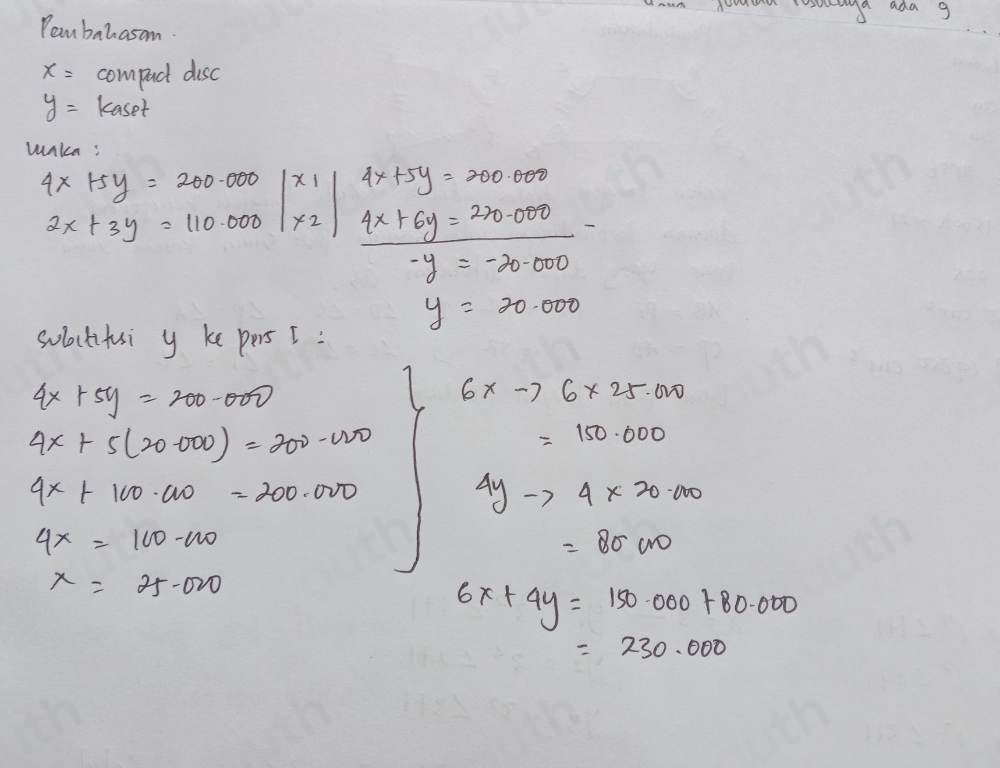 ada 9
Pembahasan.
x = compact disc
y = kaset
maka :
4x + 5y = 200.000 | x1 | 4x + 5y = 200.000
2x + 3y = 110.000 | x2 | 4x + 6y = 220.000 -
-y = -20.000
y = 20.000
subtitusi y ke pers I :
4x + 5y = 200.000
4x + 5(20.000) = 200.000
4x + 100.000 = 200.000
4x = 100.000
x = 25.000
6x -> 6 x 25.000
= 150.000
4y -> 4 x 20.000
= 80.000
6x + 4y = 150.000 + 80.000
= 230.000